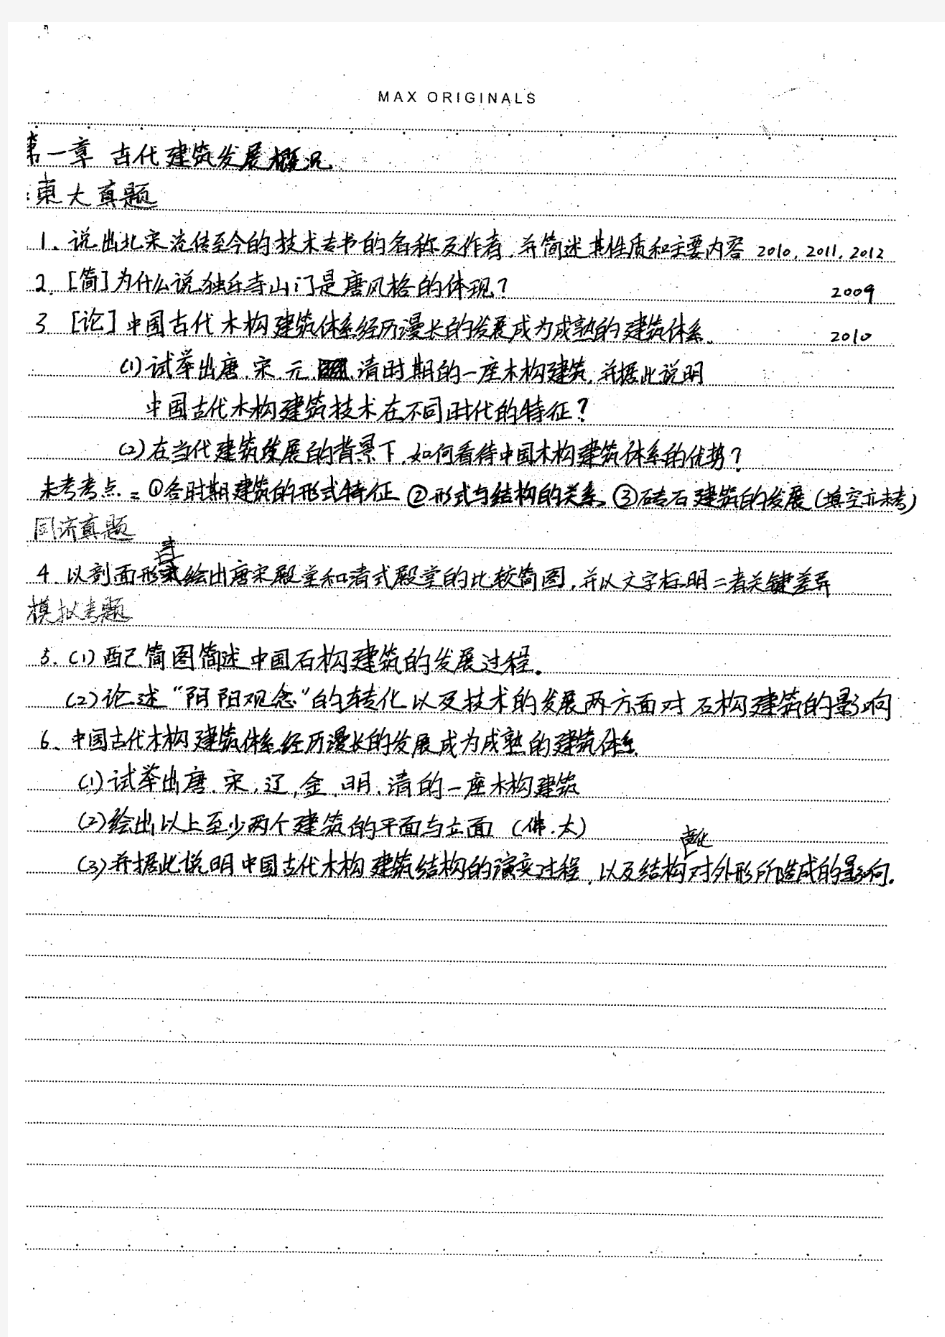 MAX ORIGINALS
第一章 古代建筑发展概况
東大真题
1. 说出北宋流传至今的技术专书的名称及作者,并简述其性质和主要内容 2010, 2011, 2012
2. [简] 为什么说独乐寺山门是唐风格的体现? 2009
3. [论] 中国古代木构建筑体系经历漫长的发展成为成熟的建筑体系. 2010
(1) 试举出唐.宋.元.清时期的一座木构建筑,并据此说明
中国古代木构建筑技术在不同时代的特征?
(2) 在当代建筑发展的背景下,如何看待中国木构建筑体系的优势?
未考考点=①各时期建筑的形式特征 ②形式与结构的关系 ③砖石建筑的发展(填空亦未考)
同济真题
4. 以剖面形式绘出唐宋殿堂和清式殿堂的比较简图,并以文字标明二者关键差异
模拟考题
5. (1) 配已简图简述中国石构建筑的发展过程.
(2) 论述“阴阳观念”的转化以及技术的发展两方面对石构建筑的影响
6、中国古代木构建筑体系经历漫长的发展成为成熟的建筑体系
(1) 试举出唐.宋,辽,金.明.清的一座木构建筑
(2) 绘出以上至少两个建筑的平面与立面 (佛.太)
(3) 并据此说明中国古代木构建筑结构的演变过程,以及结构变化对外形所造成的影响.